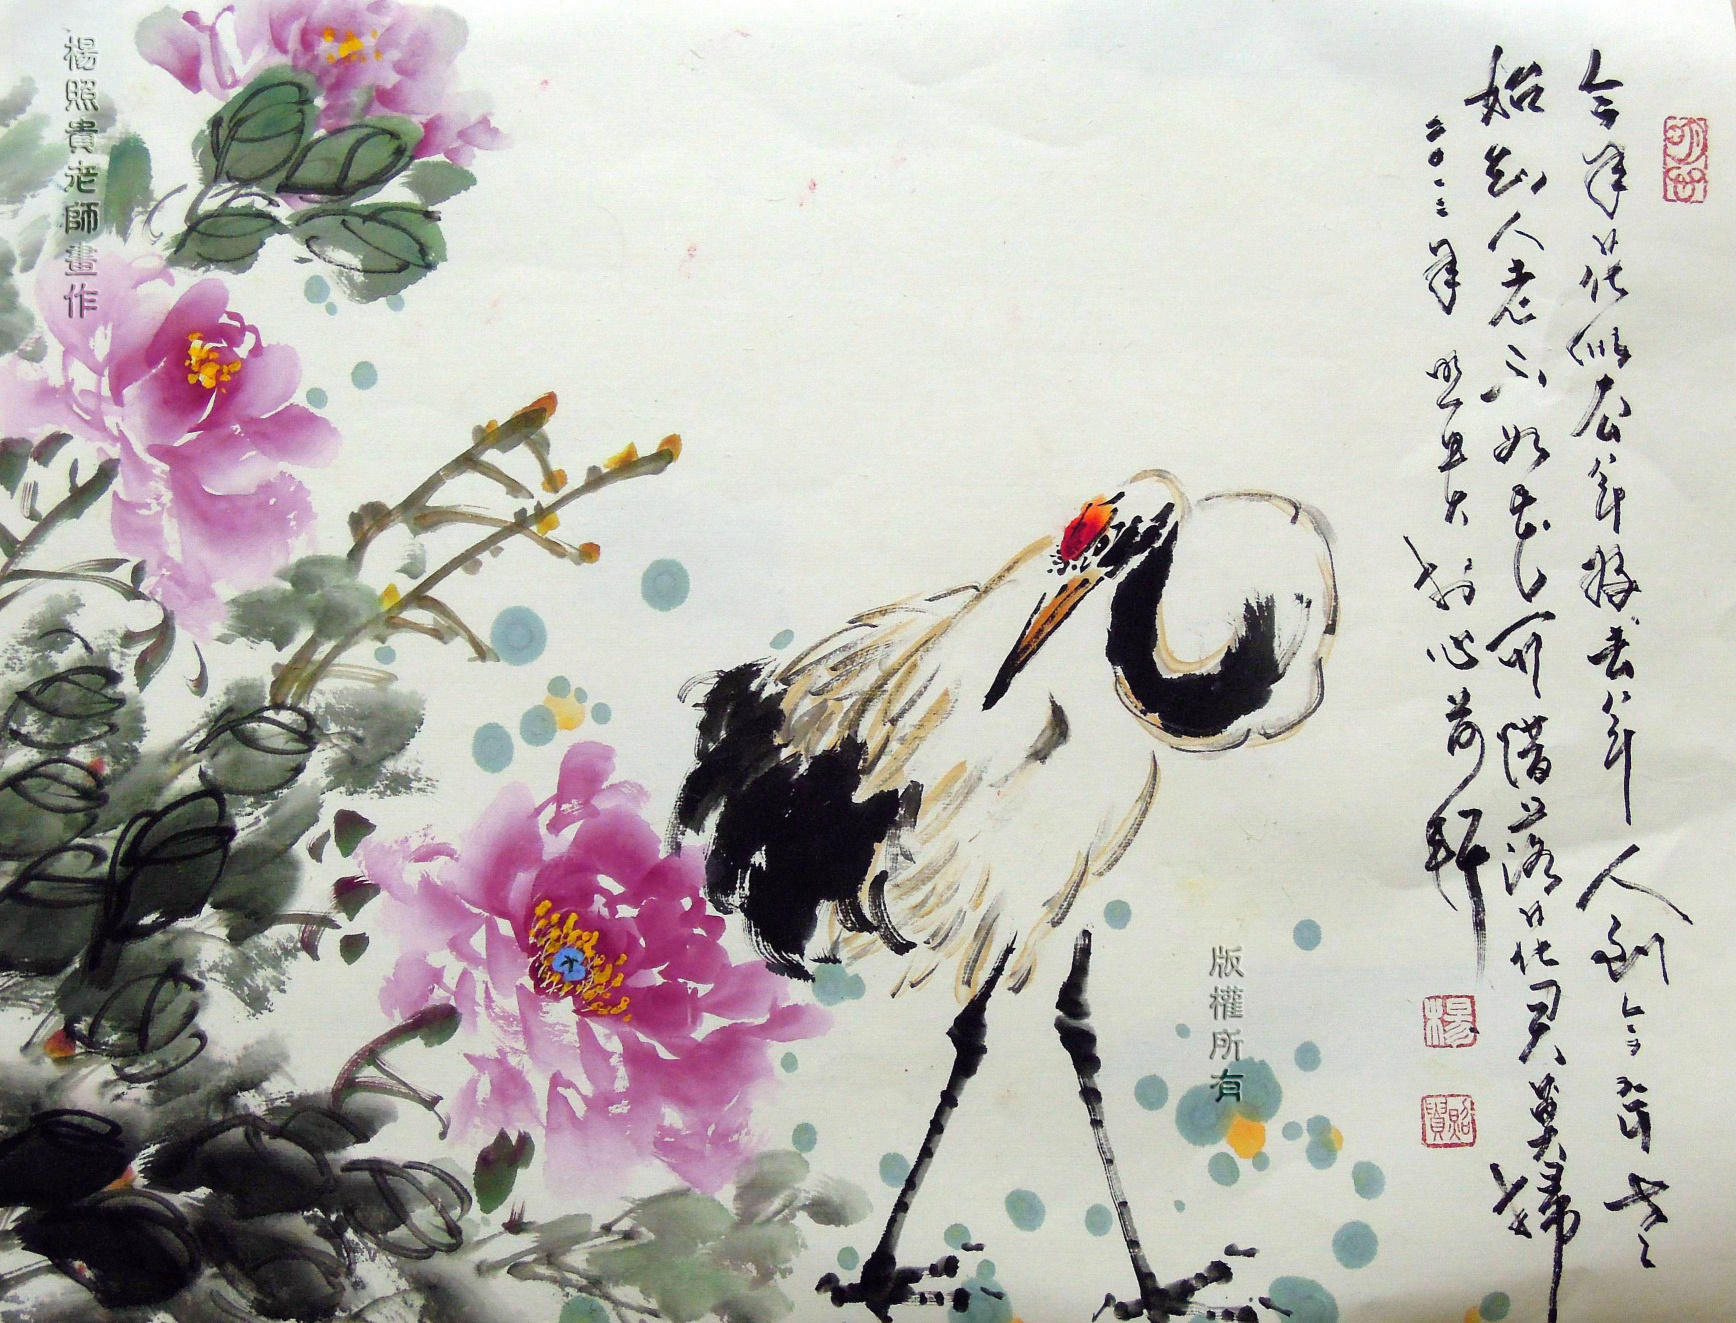 今年花似去年好去年人到今年老
始知人老不如花可惜落花君莫掃
二0一二年 照貴於心荷軒
楊
照貴
版權所有
楊照貴老師畫作